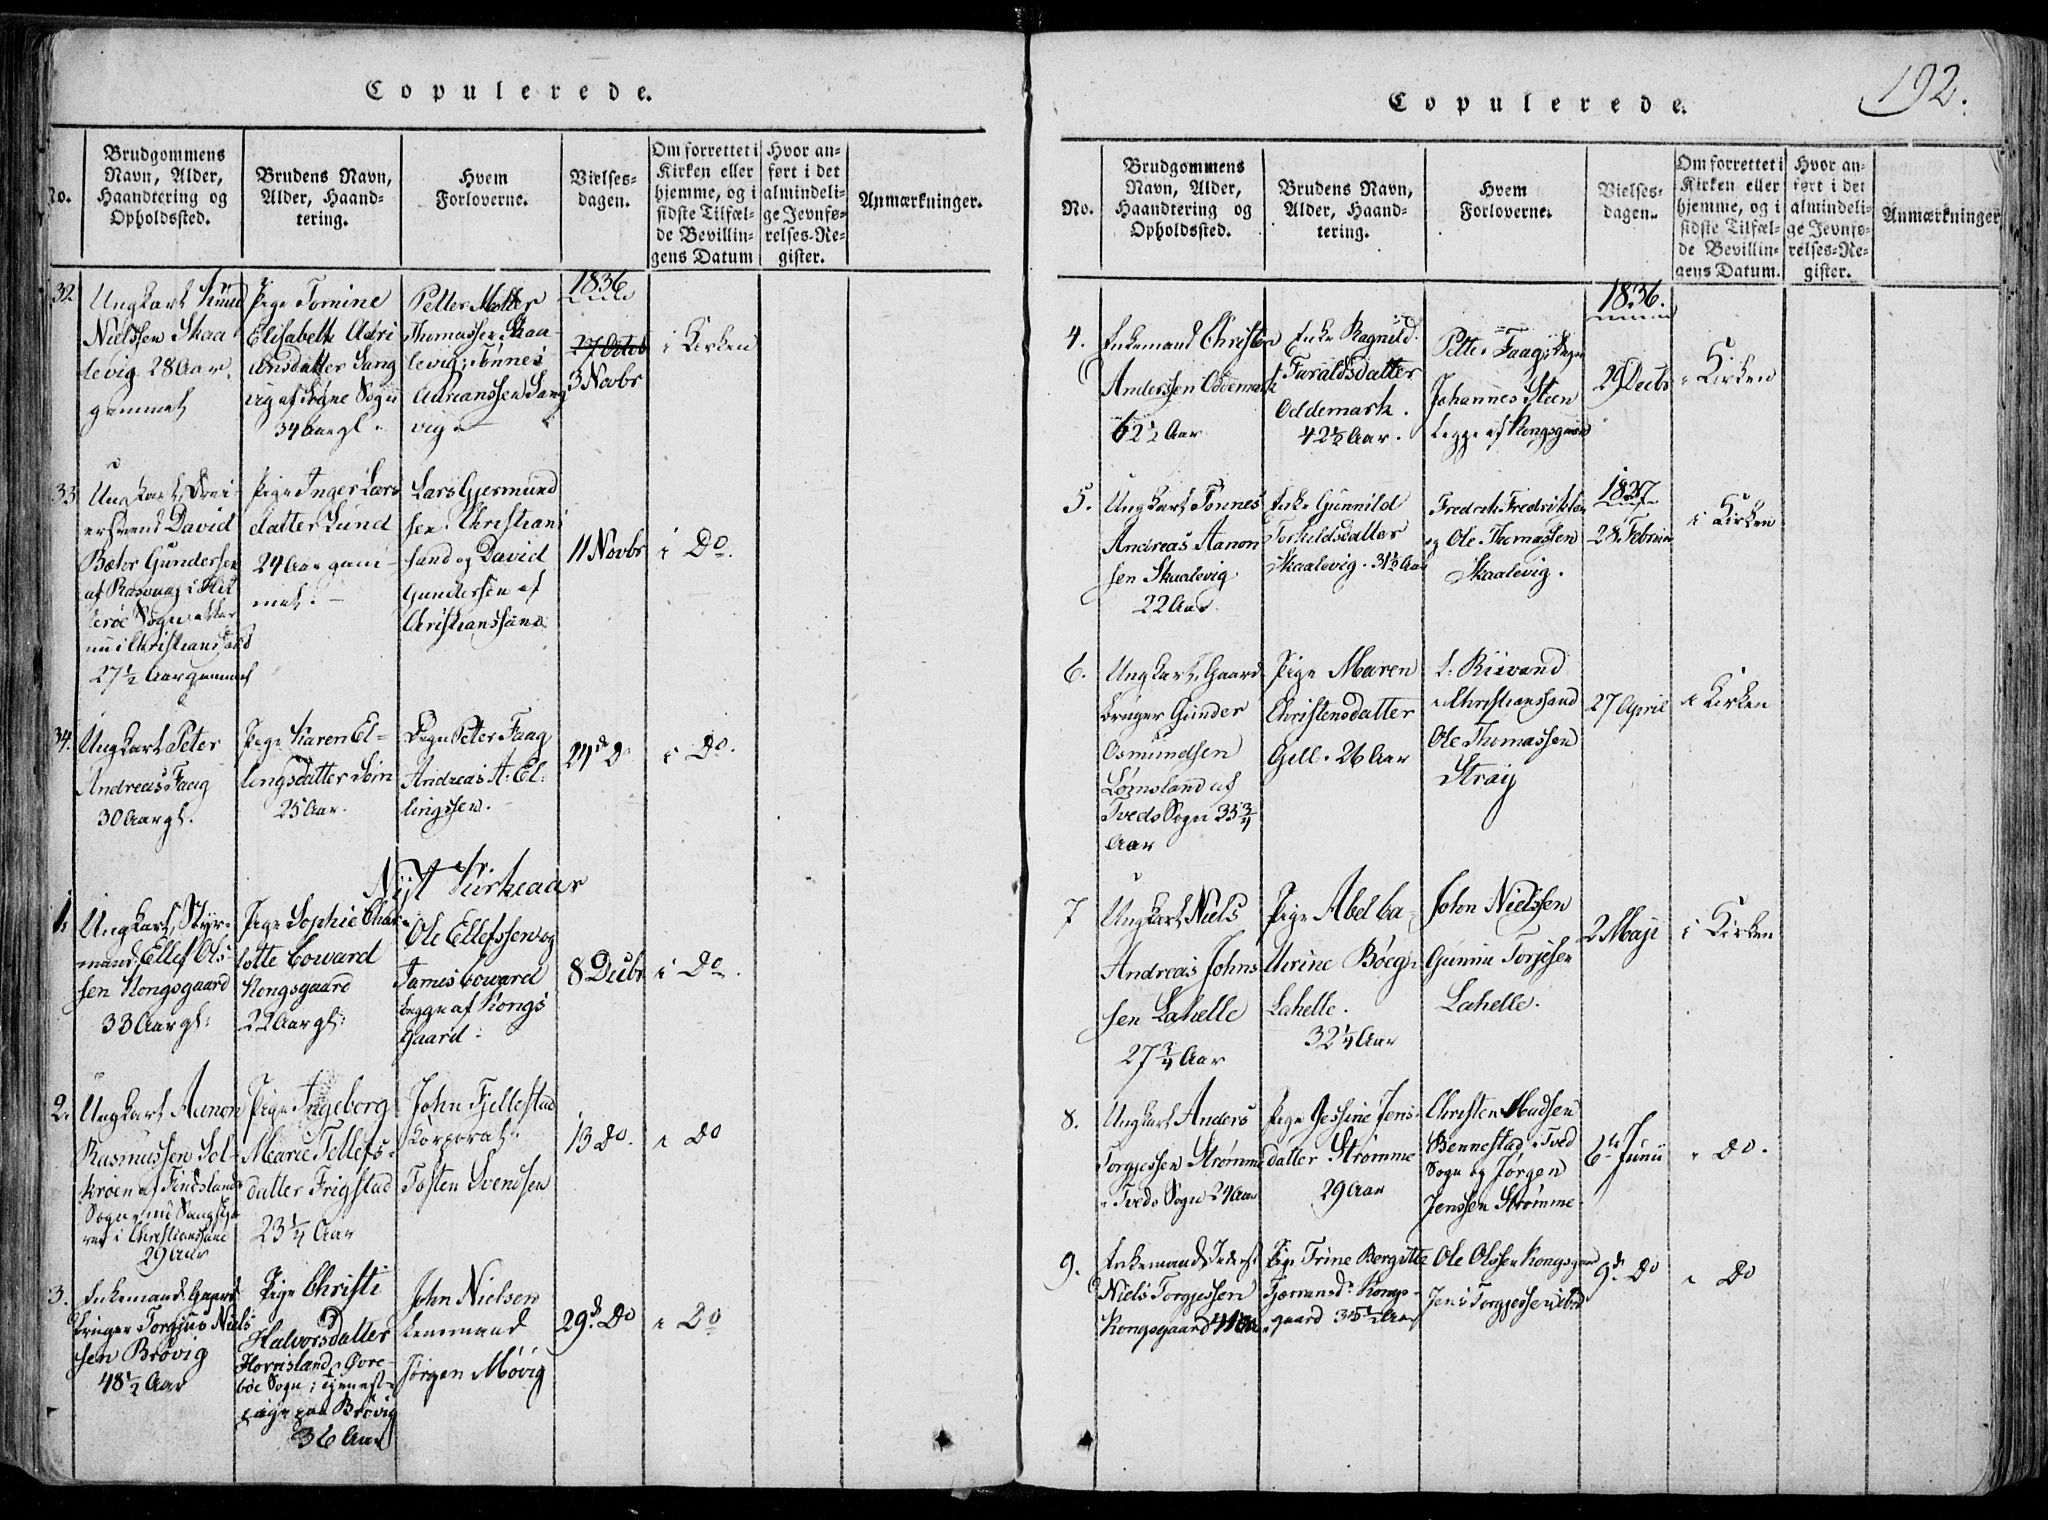 Copulerede.
No.
Brudgommens
Navn, Alder,
Haandtering og
Opholdssted.
Brudens Navn,
Alder, Haand-
tering.
Hvem
Forloverne.
Vielses-
dagen.
Om forrettet i
Kirken eller
hjemme, og i
sidste Tilfæl-
de Bevillin-
gens Datum
Hvor an-
ført i det
almindeli-
ge Jevnfø-
relses-Re-
gister.
Anmærkninger.
32
Ungkarl Knud
Nielssen Skaa
levig 28 Aar.
gammel
Pige Tomine
Elisabeth Adri
ansdatter Lang
vig af Søgne Sogn
34 Aar gl.
Petter
Thomassen Skaa-
levig; Tønnes
Adrianssen Lang
vig
1836
27 Octob
3 Novbr
i Kirken
33
Ungkarl,
David
Gundersen
af Rasvaag i Hit
terøe Sogn
nu i Christianssand
27 1/2 Aar gammel
Pige Inger Lars
datter Lund
24 Aar gam-
mel.
Lars Gjermund
sen Christian
sand og David
Gundersen af
Christianssand
11 Novbr
i Do.
34.
Ungkarl Peter
Andreas Faag
30 Aar gl.
Pige Karen El-
lingsdatter
25 Aar.
Peter Faag
Andreas A. El-
lingssen.
24 D
i Do.
Nyt Kirkeaar
1.
Ungkarl, Styr-
mand, Ellef Ols-
sen Kongsgaard
33 Aar gl:
Pige Sophie Char-
lotte Coward
Kongsgaard
22 Aar gl:
Ole Ellefssen og
James Coward
begge af Kongs
gaard.
8 Decbr
i Do.
2.
Ungkarl Aanon
Rasmussen Sel-
kroen af Findslands
Sogn, nu
i Christianssand
29 Aar
Pige Ingeborg
Marie Tellefs-
datter Frigstad
23 1/4 Aar
John Fjellestad
Korporal.
Tosten Svendsen
13 Do.
i Do
3.
Enkemand, Gaard
bruger Torgius Niels
sen Brøvig
48 1/2 Aar
Pige Christi
Halvorsdatter
Horrisland, Øvre-
bøe Sogn; tjenest-
pige paa Brøvig
36 Aar
John Nielsen
Lensmand
Jørgen Møvig
29d. Do
i Do
Copulerede.
192.
No.
Brudgommens
Navn, Alder,
Haandtering og
Opholdssted.
Brudens Navn,
Alder, Haand-
tering.
Hvem
Forloverne.
Vielses-
dagen.
Om forrettet i
Kirken eller
hjemme, og i
sidste Tilfæl-
de Bevillin-
gens Datum.
Hvor an-
ført i det
almindeli-
ge Jevnfø-
relses-Re-
gister.
Anmærkninger
4.
Enkemand Christen
Anderssen Oddemark
62 1/2 Aar
Enke Ragnild
Taraldsdatter
Oddemark.
42 1/2 Aar.
Petter Faag,
Johannes Steen
begge af Kongsgaard
1836.
29 Decbr
i Kirken
5.
Ungkarl Tønnes
Andreas Aanon
sen Skaalevig
22 Aar.
Enke Gunnild
Torkildsdatter
Skaalevig. 31 1/2 Aar
Fredrik Fredriksen
og Ole Thomassen
Skaalevig.
1837
28 Februar
i Kirken
6.
Ungkarl, Gaard
bruger Gunder
Osmundsen
Lømsland af
Tveds Sogn 35 3/4
Aar
Pige Maren
Christensdatter
Gill. 26 Aar
Christianssand
Ole Thomassen
Stray
27 April
i Kirken
7
Ungkarl Niels
Andreas Johns
sen Lahelle
27 3/4 Aar
Pige Abel Ca-
thrine
Lahelle.
32 1/4 Aar
John Nielssen
Gunnu Torjesen
Lahelle.
2 Maji
i Kirken
8.
Ungkarl Anders
Torgjessen Strømme
i Tveds Sogn 24 Aar
Pige Gessine Jens-
datter Strømme
29 Aar
Christen Madsen
Bennestad i Tved
Sogn og Jørgen
Jenssen Strømme
6te Junii
i Do.
9.
Enkemand,
Niels Torgjessen
Kongsgaard 41 Aar
Pige Trine Bergitte
Kongs-
gaard 35 1/2 Aar
Ole Olssen Kongsgaard
Jens Torgjessen ibd
9d. Do
i Do